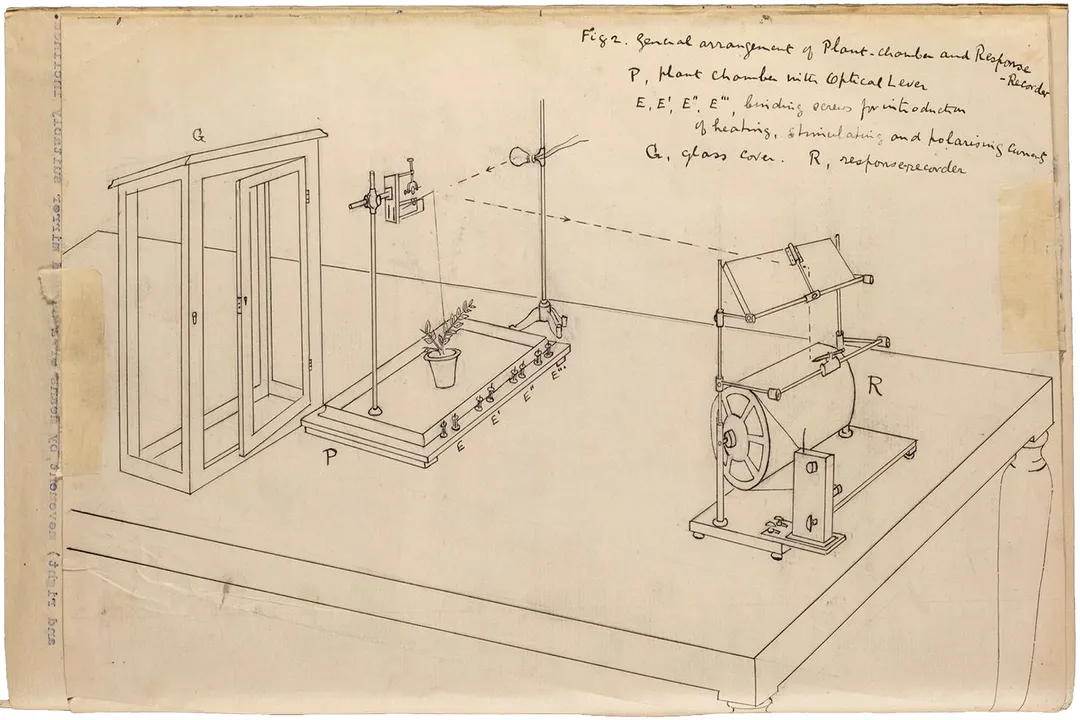 Fig 2. General arrangement of Plant-chamber and Response
-Recorder
P, plant chamber with Optical Lever
E, E', E", E"', binding screws for introduction
of heating, stimulating and polarising current
G, glass cover. R, response-recorder
G
R
P
E
E'
E"
E"'